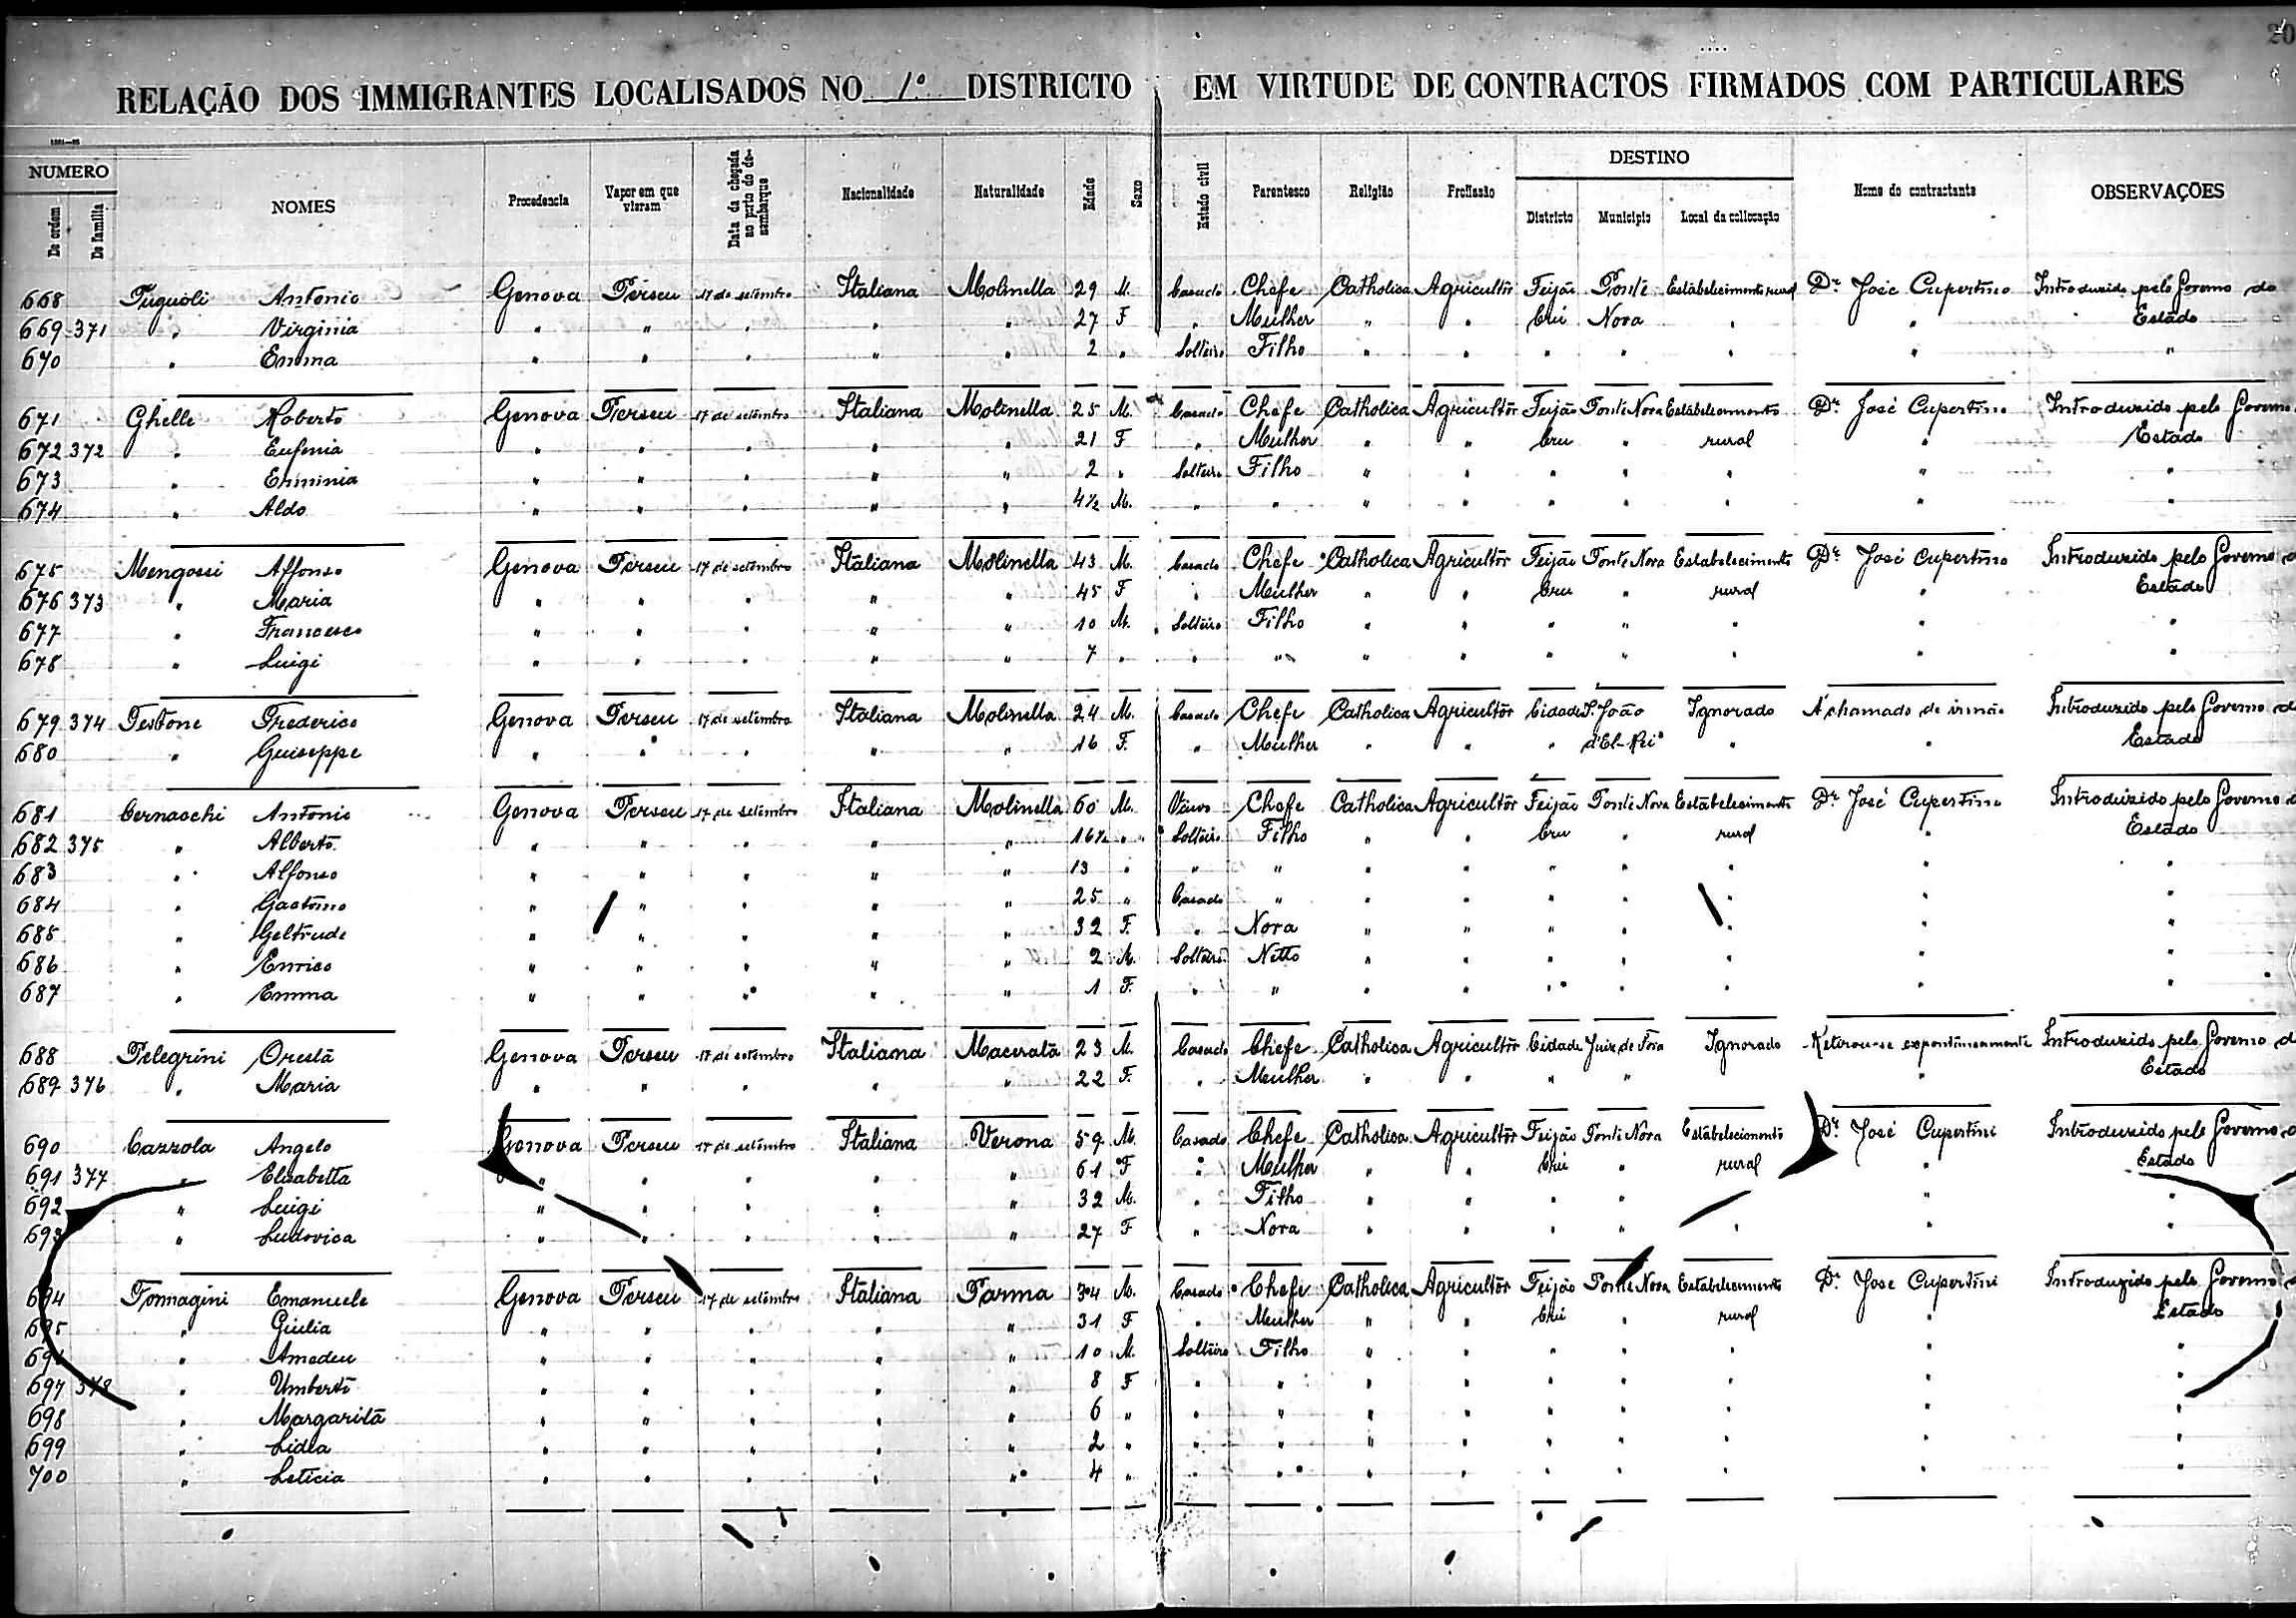 20
RELAÇÃO DOS IMMIGRANTES LOCALISADOS NO 1º DISTRICTO EM VIRTUDE DE CONTRACTOS FIRMADOS COM PARTICULARES
NUMERO
De ordem De familia NOMES Procedencia Vapor em que vieram Data da chegada ao porto do desembarque Nacionalidade Naturalidade Edade Sexo Estado civil Parentesco Religião Profissão DESTINO Districto Municipio Local da collocação Nome do contractante OBSERVAÇÕES
668 Antonio Genova Perseu 17 de setembro Italiana Molinella 29 M. Casado Chefe Catholica Agricultôr Feijão Ponte Estabelecimento rural Dr. José Cupertino Introdusido pelo Governo do
669 371 " Virginia " " " " " 27 F " Mulher " " Crú Nova " " Estado
670 " Emma " " " " " 2 " Solteiro Filho " " " " " " "
671 Ghelle Roberto Genova Perseu 17 de setembro Italiana Molinella 25 M. Casado Chefe Catholica Agricultôr Feijão Ponte Nova Estabelecimento Dr. José Cupertino Introdusido pelo Governo
672 372 " Eufemia " " " " " 21 F " Mulher " " Cru " rural " Estado
673 " Erminia " " " " " 2 " Solteiro Filho " " " " " " "
674 " Aldo " " " " " 4½ M. " " " " " " " " "
675 Mengossi Affonso Genova Perseu 17 de setembro Italiana Molinella 43 M. Casado Chefe Catholica Agricultôr Feijão Ponte Nova Estabelecimento Dr. José Cupertino Introdusido pelo Governo
676 373 " Maria " " " " " 45 F " Mulher " " Cru " rural " Estado
677 " Francesco " " " " " 10 M. Solteiro Filho " " " " " " "
678 " Luigi " " " " " 7 " " " " " " " " " "
679 374 Testone Frederico Genova Perseu 17 de setembro Italiana Molinella 24 M. Casado Chefe Catholica Agricultôr Cidade S. João Ignorado A chamado de irmão Introdusido pelo Governo
680 " Guiseppe " " " " " 16 F. " Mulher " " " d'El-Rei " " Estado
681 Cernaschi Antonio Genova Perseu 17 de setembro Italiana Molinella 60 M. Viuvo Chefe Catholica Agricultôr Feijão Ponte Nova Estabelecimento Dr. José Cupertino Introdusido pelo Governo
682 375 " Alberto " " " " " 16½ " Solteiro Filho " " Cru " rural " Estado
683 " Alfonso " " " " " 13 " " " " " " " " " "
684 " Gaetano " " " " " 25 " Casado " " " " " " " "
685 " Geltrude " " " " " 32 F. " Nora " " " " " " "
686 " Enrico " " " " " 2 M. Solteiro Netto " " " " " " "
687 " Emma " " " " " 1 F. " " " " " " " " "
688 Pelegrini Oresta Genova Perseu 17 de setembro Italiana Macerata 23 M. Casado Chefe Catholica Agricultôr Cidade Juiz de Fóra Ignorado Retirou-se expontaneamente Introdusido pelo Governo
689 376 " Maria " " " " " 22 F. " Mulher " " " " " " Estado
690 Cazzola Angelo Genova Perseu 17 de setembro Italiana Verona 59 M. Casado Chefe Catholica Agricultôr Feijão Ponte Nova Estabelecimento Dr. José Cupertini Introdusido pelo Governo
691 377 " Elisabetta " " " " " 61 F " Mulher " " Crú " rural " Estado
692 " Luigi " " " " " 32 M. " Filho " " " " " " "
693 " Ludovica " " " " " 27 F " Nora " " " " " " "
694 Emanuele Genova Perseu 17 de setembro Italiana Parma 34 M. Casado Chefe Catholica Agricultôr Feijão Ponte Nova Estabelecimento Dr. José Cupertini Introduzido pelo Governo
695 " Giulia " " " " " 31 F " Mulher " " Crú " rural " Estado
696 " Amadeu " " " " " 10 M. Solteiro Filho " " " " " " "
697 378 " Umberti " " " " " 8 F " " " " " " " " "
698 " Margarita " " " " " 6 " " " " " " " " " "
699 " Lidia " " " " " 2 " " " " " " " " " "
700 " Leticia " " " " " 4 " " " " " " " " " "